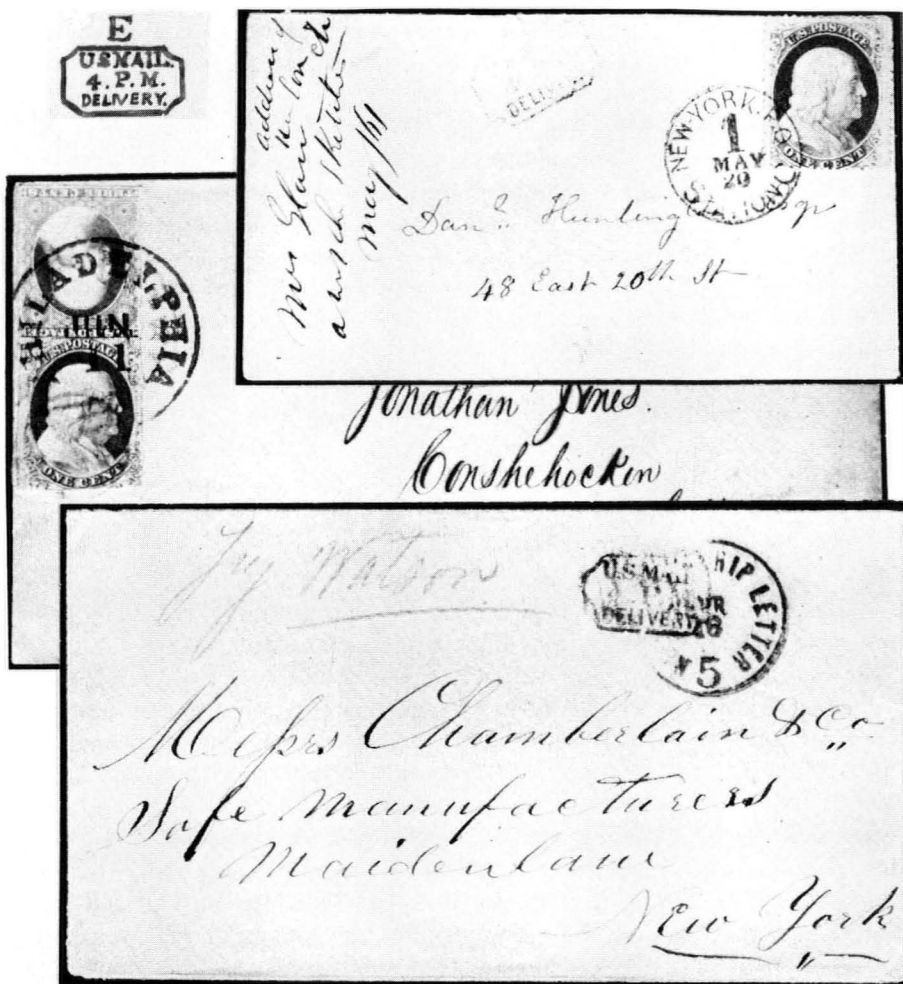 E
U.S MAIL.
4. P. M.
DELIVERY.
Mrs
address
May
DELIVERY
U.S. POSTAGE
ONE CENT
NEW-YORK P.O.
1
MAY
20
STATION
Danl. Huntington Esqr
48 East 20th St
PHILADELPHIA
JUN
11
U.S. POSTAGE
ONE CENT
Jonathan Jones.
Conshehocken
Watson
U.S MAIL
DELIVERY
SHIP LETTER
5
Messrs Chamberlain & Co
Safe Manufacturers
Maidenlane
New York